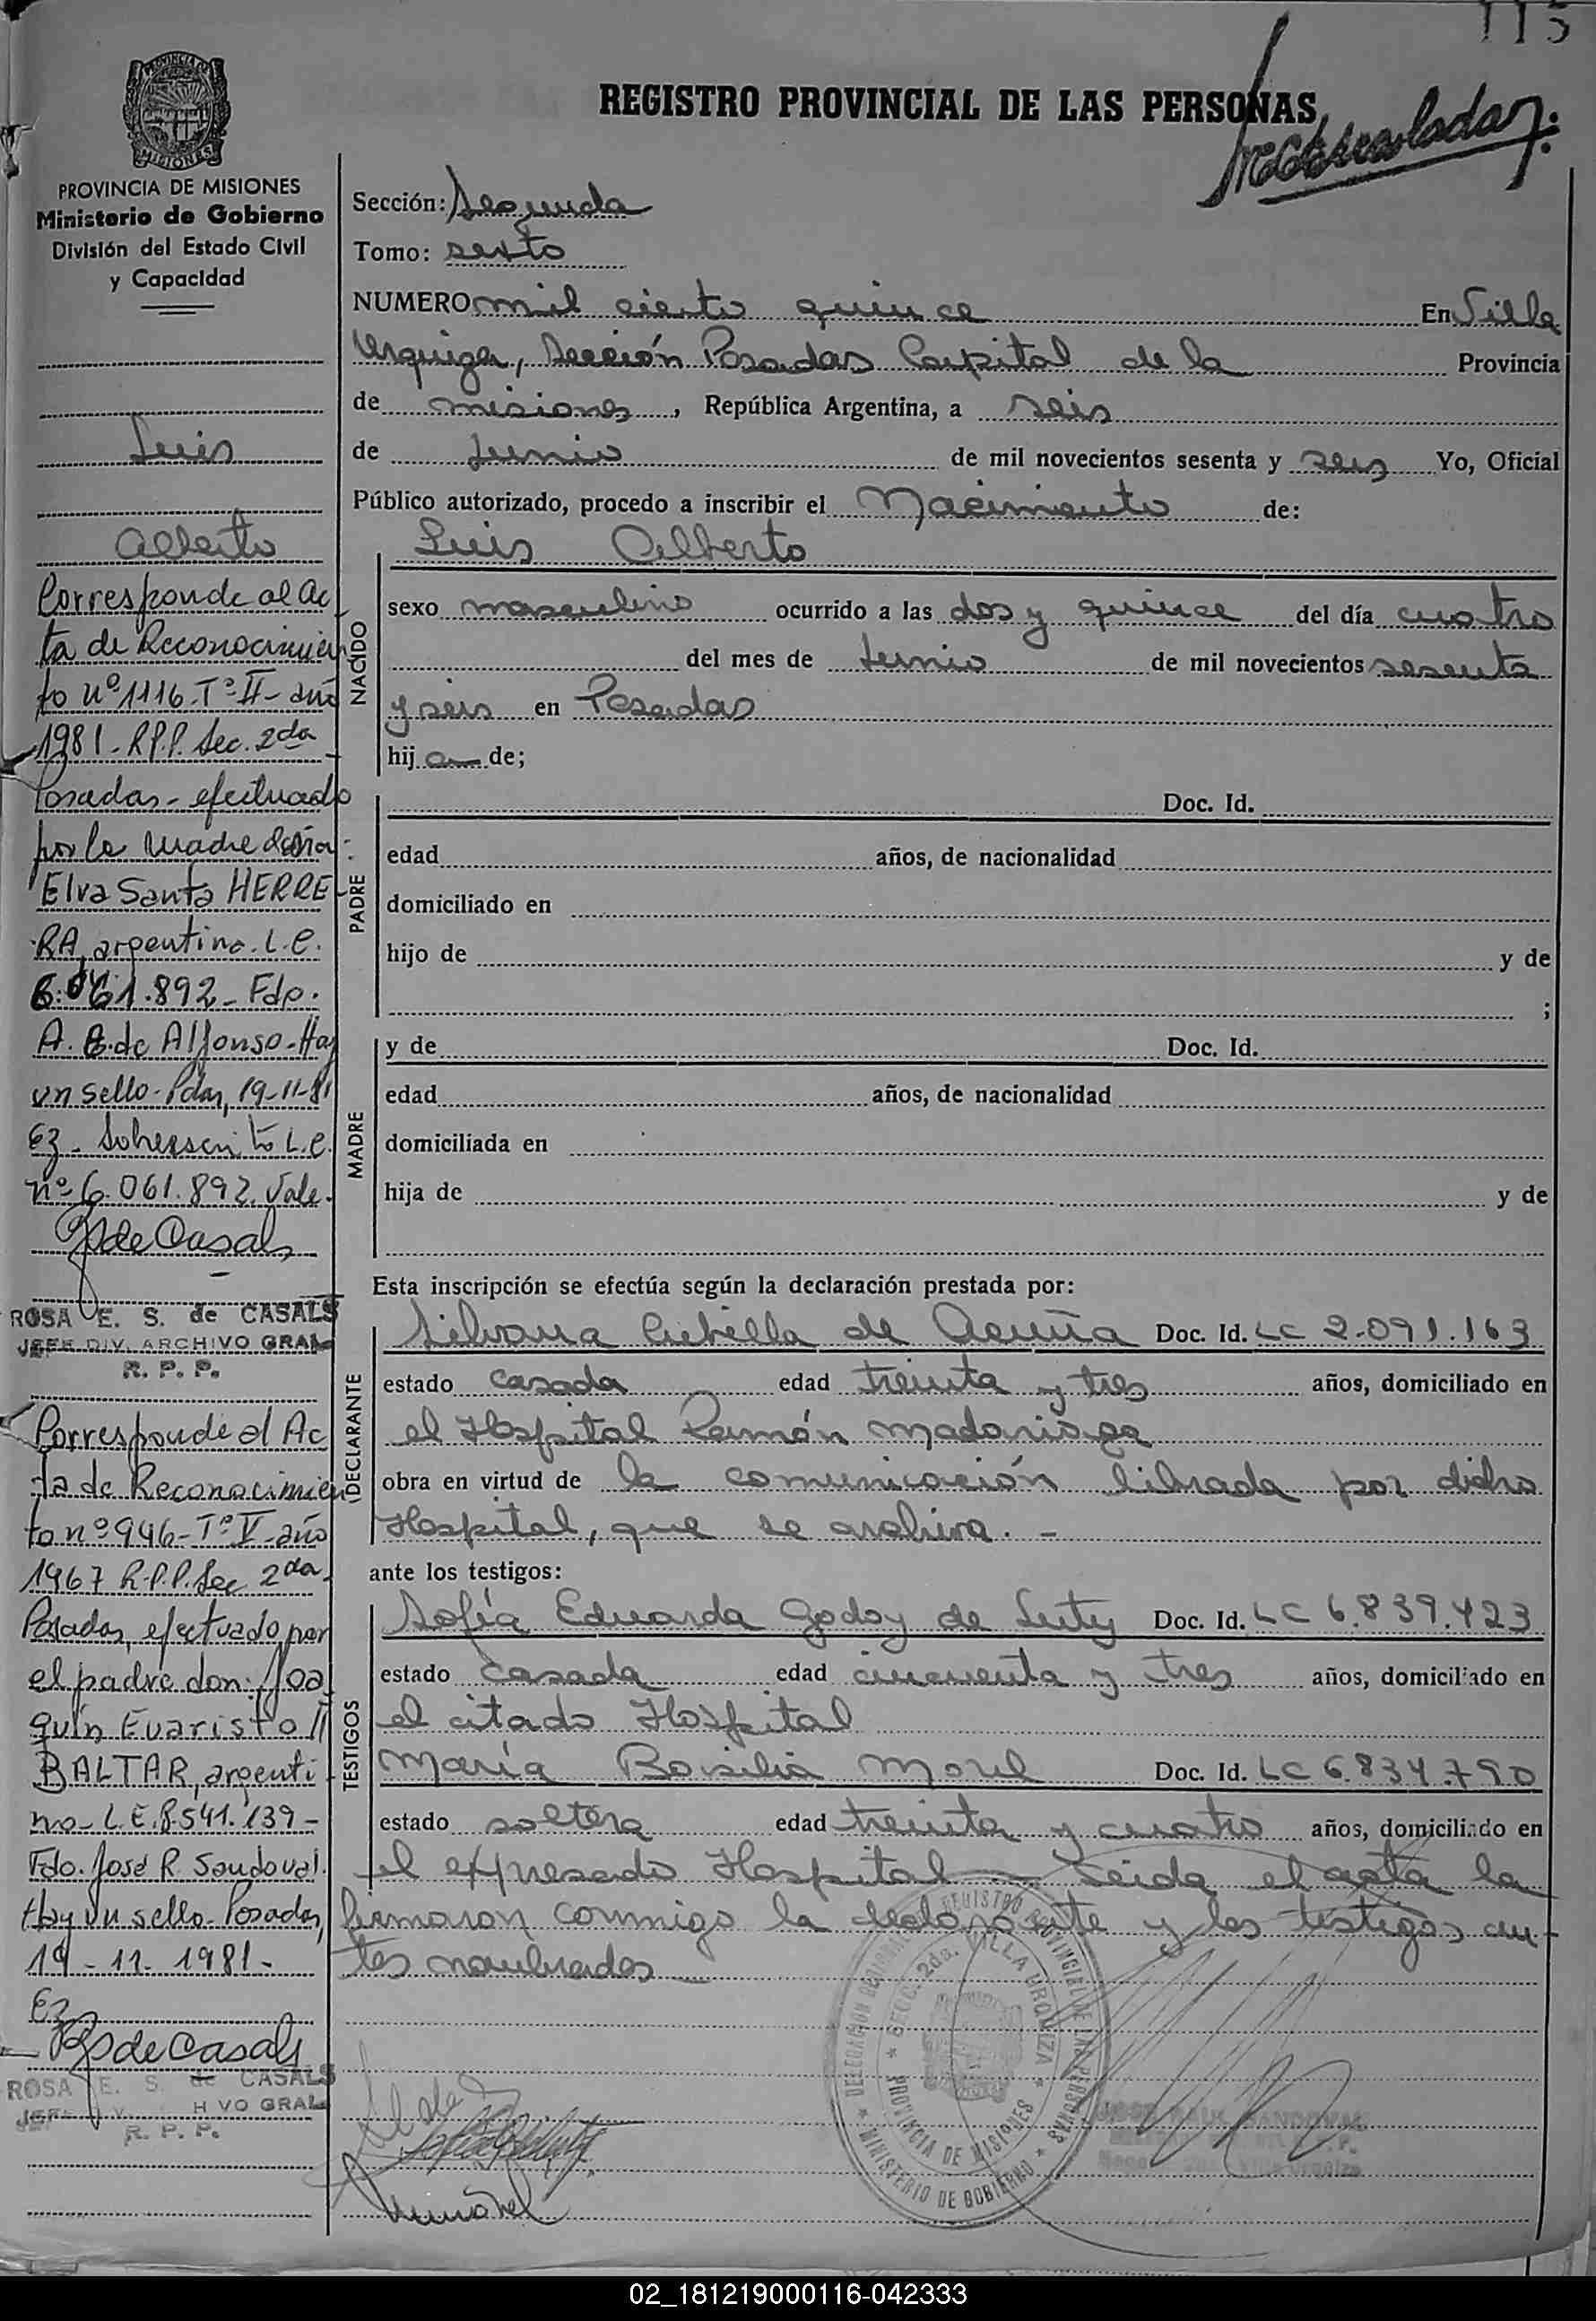 115
REGISTRO PROVINCIAL DE LAS PERSONAS
PROVINCIA DE MISIONES
Ministerio de Gobierno
División del Estado Civil
y Capacidad
Luis
Alberto
Corresponde al Ac
ta de Reconocimien
to nº 1116-Tº II-año
1981-R.P.P. Sec. 2da
Posadas-efectuado
por la madre doña:
Elva Santa HERRE-
RA, argentina. L.C.
6.061.892-Fdo.
A. B. de Alfonso-Hay
un sello-Pdas, 19-11-81
Ez-Sobrescrito L.C.
nº 6.061.892. Vale.
RSdeCasals
ROSA E. S. de CASALS
JEFE DIV. ARCHIVO GRAL
R. P. P.
Corresponde al Ac
ta de Reconocimien
to nº 946-Tº V-año
1967 R.P.P. Sec 2da-
Posadas, efectuado por
el padre don: Joa
quín Evaristo
BALTAR, argenti
no-L.E. 8.541.139-
Fdo. José R. Sandoval.
Hay un sello-Posadas,
19-11-1981-
Ez
RSdeCasals
ROSA E. S. de CASALS
JEF IV. H VO GRAL
R. P. P.
Sección: Segunda
Tomo: sexto
NUMERO mil ciento quince En Villa
Urquiza, Sección Posadas Capital de la Provincia
de misiones, República Argentina, a seis
de Junio de mil novecientos sesenta y seis Yo, Oficial
Público autorizado, procedo a inscribir el Nacimiento de:
NACIDO
Luis Alberto
sexo masculino ocurrido a las dos y quince del día cuatro
del mes de Junio de mil novecientos sesenta
y seis en Posadas
hij de;
PADRE
Doc. Id.
edad años, de nacionalidad
domiciliado en
hijo de y de
;
MADRE
y de Doc. Id.
edad años, de nacionalidad
domiciliada en
hija de y de
Esta inscripción se efectúa según la declaración prestada por:
DECLARANTE
Silvana Cubella de Acuña Doc. Id. LC 2.091.163
estado casada edad treinta y tres años, domiciliado en
el Hospital Ramón madariaga
obra en virtud de la comunicación librada por dicho
Hospital, que se archiva. -
ante los testigos:
TESTIGOS
Sofía Eduarda Godoy de Luty Doc. Id. LC 6.839.423
estado casada edad cincuenta y tres años, domiciliado en
el citado Hospital
María Basilia Morel Doc. Id. LC 6.834.790
estado soltera edad treinta y cuatro años, domiciliado en
el expresado Hospital - Leida el acta la
firmaron conmigo la declarante y los testigos an-
tes nombrados
DELEGACION REGISTRO PROVINCIAL DE LAS PERSONAS
* MINISTERIO DE GOBIERNO *
* SECC. 2da. VILLA URQUIZA *
PROVINCIA DE MISIONES
02_181219000116-042333